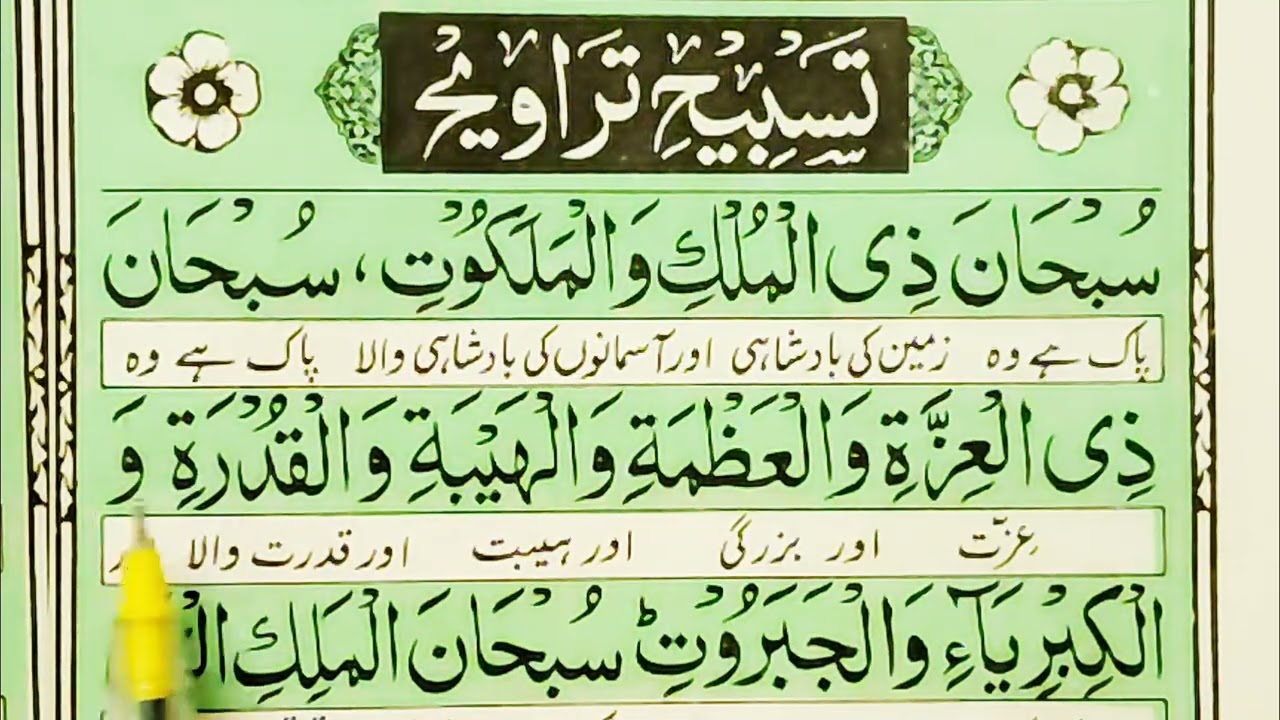 تَسْبِيْحِ تَرَاوِيْح
سُبْحَانَ ذِی الْمُلْكِ وَالْمَلَكُوْتِ ، سُبْحَانَ
پاک ہے وہ زمین کی بادشاہی اور آسمانوں کی بادشاہی والا پاک ہے وہ
ذِی الْعِزَّةِ وَالْعَظْمَةِ وَالْهَيْبَةِ وَالْقُدْرَةِ وَ
عزّت اور بزرگی اور ہیبت اور قدرت والا
الْكِبْرِيَآءِ وَالْجَبَرُوْتِ ط سُبْحَانَ الْمَلِكِ